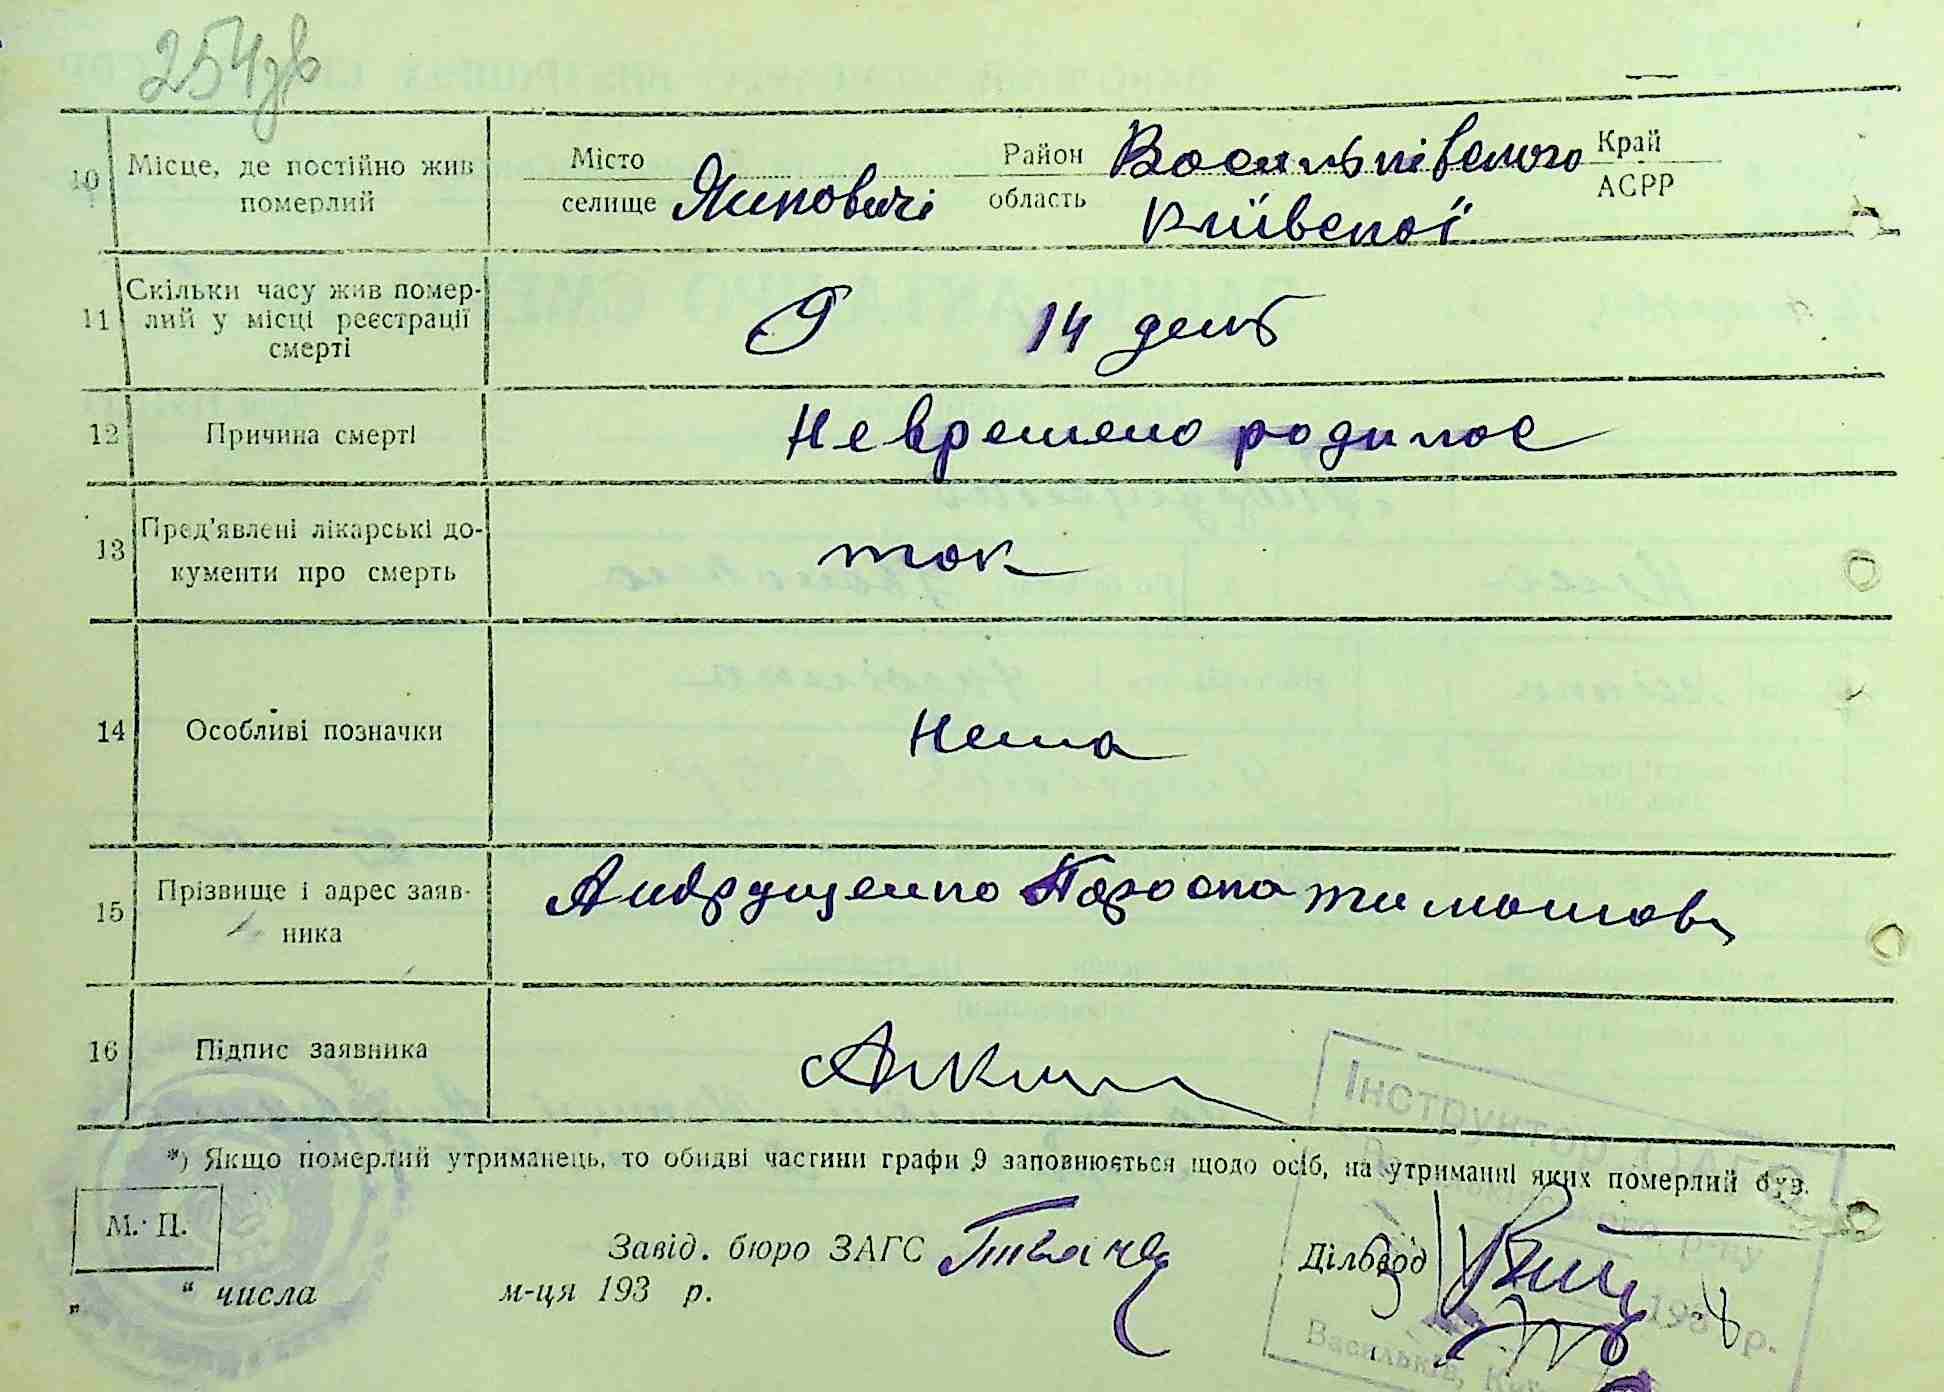 254зв
10 Місце, де постійно жив померлий
Місто селище Яцковичі Район область Васильківського Київської Край АСРР
11 Скільки часу жив померлий у місці реєстрації смерті
14 день
12 Причина смерті
Невремено родилос
13 Пред'явлені лікарські документи про смерть
так
14 Особливі позначки
Нема
15 Прізвище і адрес заявника
Андрущенко Параска Тимошов
16 Підпис заявника
*) Якщо померлий утриманець, то обидві частини графи 9 заповнюється щодо осіб, на утриманні яких померлий був.
М. П.
Завід. бюро ЗАГС Діловод
„ “ числа м-ця 193 р.
Інструктор
р-ну
193 8 р.
Васильків,